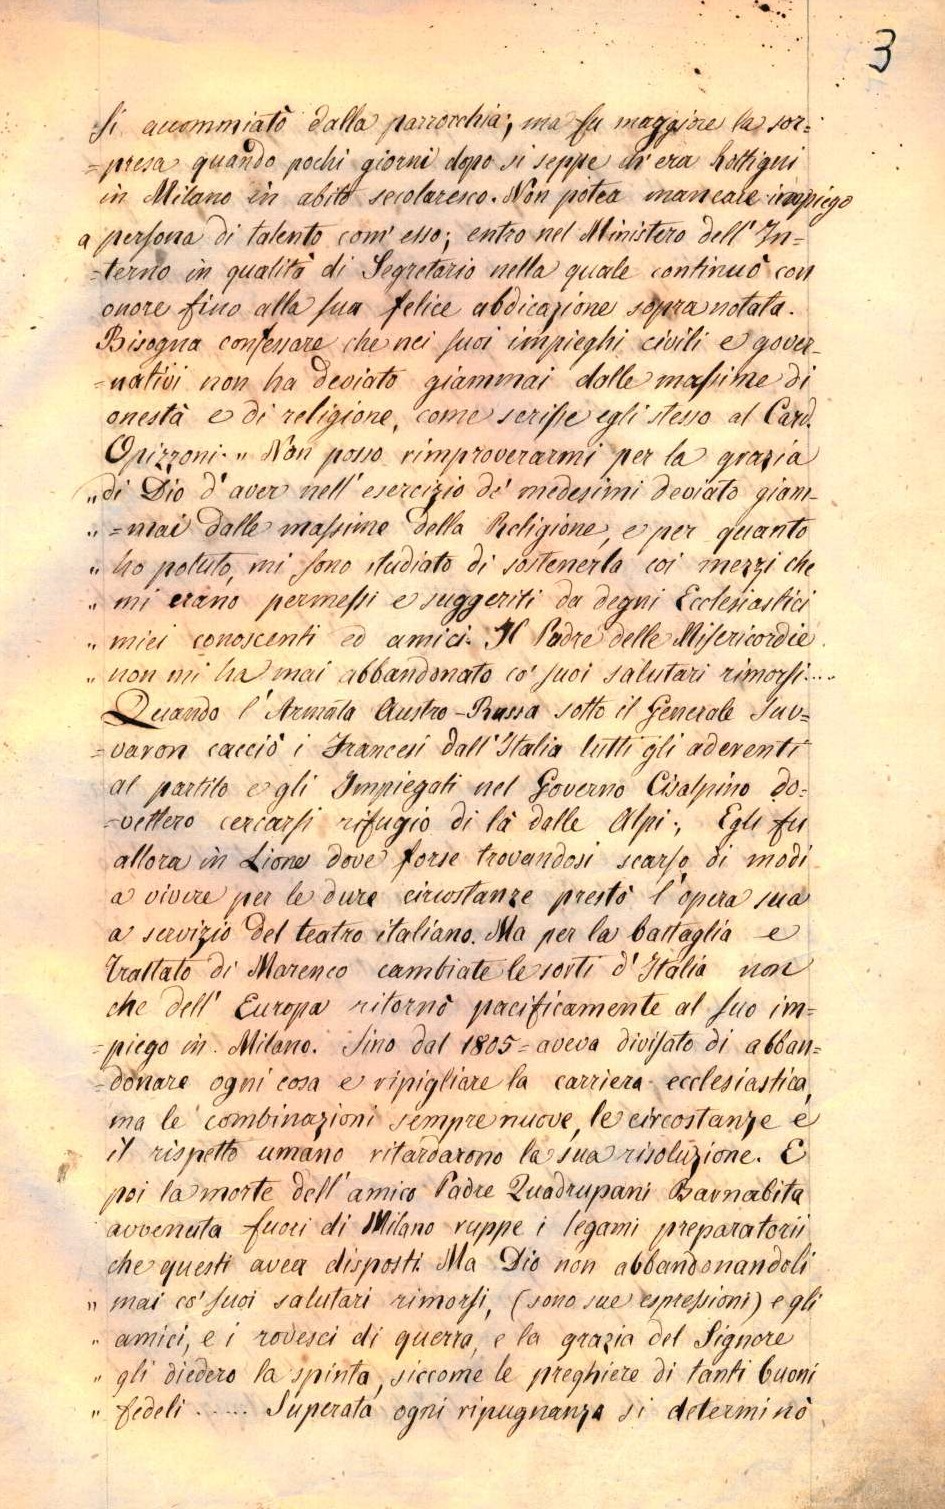 3
Si accommiatò dalla parrocchia; ma fu maggiore la sor=
=presa quando pochi giorni dopo si seppe ch'era Rottigni
in Milano in abito secolaresco. Non potea mancare impiego
a persona di talento com' esso; entrò nel Ministero dell' In=
=terno in qualità di Segretario nella quale continuò con
onore fino alla sua felice abdicazione sopranotata.
Bisogna confessare che nei suoi impieghi civili e gover-
=nativi non ha deviato giammai dalle massime di
onestà e di religione, come scrisse egli stesso al Card.
Opizzoni. „ Non posso rimproverarmi per la grazia
„ di Dio d'aver nell' esercizio de' medesimi deviato giam-
„ =mai dalle massime della Religione, e per quanto
„ ho potuto, mi sono studiato di sostenerla coi mezzi che
„ mi erano permessi e suggeriti da degni Ecclesiastici
„ miei conoscenti ed amici. Il Padre delle Misericordie
„ non mi ha mai abbandonato co' suoi salutari rimorsi....
Quando l'Armata Austro-Russa sotto il Generale Suv=
=varon cacciò i Francesi dall'Italia tutti gli aderenti
al partito e gli Impiegati nel Governo Cisalpino do=
=vettero cercarsi rifugio di là dalle Alpi; Egli fu
allora in Lione dove forse trovandosi scarso di modi
a vivere per le dure circostanze prestò l'opera sua
a servizio del teatro italiano. Ma per la battaglia e
trattato di Marenco cambiate le sorti d'Italia non
che dell' Europa ritornò pacificamente al suo im=
=piego in Milano. Sino dal 1805= aveva divisato di abban=
=donare ogni cosa e ripigliare la carriera ecclesiastica,
ma le combinazioni sempre nuove, le circostanze e
il rispetto umano ritardarono la sua risoluzione. E
poi la morte dell'amico Padre Quadrupani Barnabita
avvenuta fuori di Milano ruppe i legami preparatorii
che questi avea disposti. Ma Dio non abbandonandoli
„ mai co' suoi salutari rimorsi, (sono sue espressioni) e gli
„ amici, e i rovesci di guerra, e la grazia del Signore
„ gli diedero la spinta, siccome le preghiere di tanti buoni
„ fedeli ..... Superata ogni ripugnanza si determinò